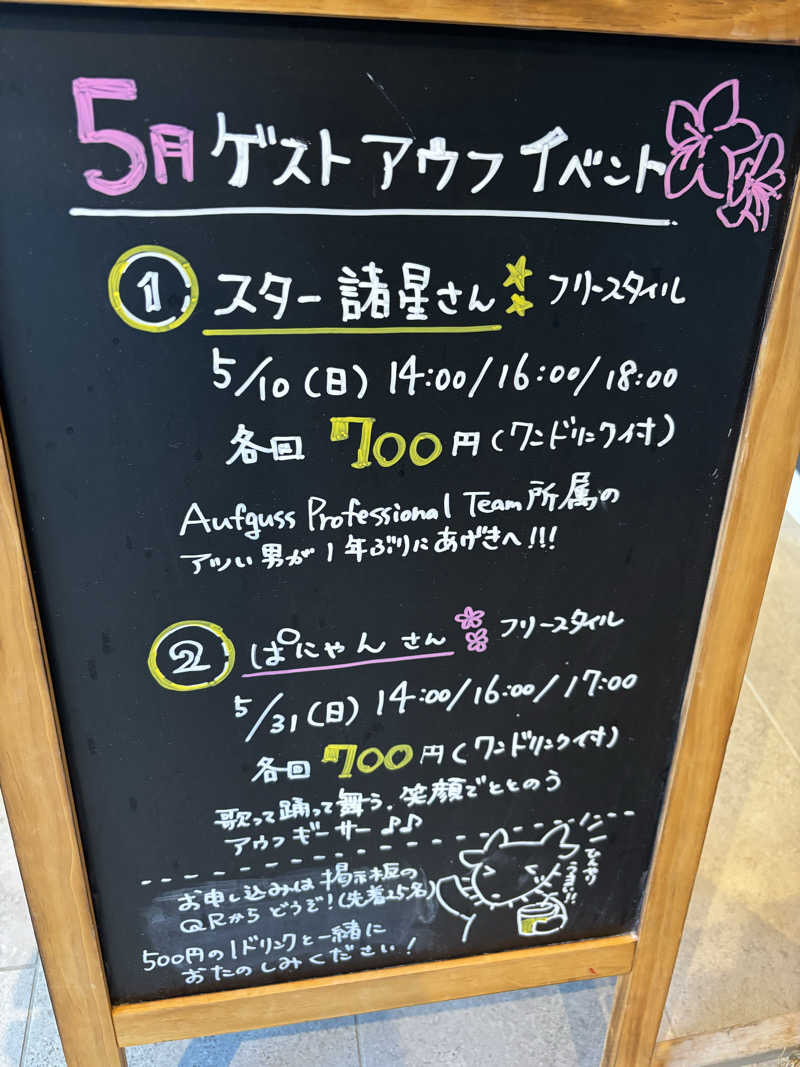 5月 ゲスト アウフ イベント
① スター 諸星さん フリースタイル
5/10(日) 14:00/16:00/18:00
各回 700円(ワンドリンク付)
Aufguss Professional Team 所属の
アツい男が1年ぶりにあげきへ!!!
② ぱにゃん さん フリースタイル
5/31(日) 14:00/16:00/17:00
各回 700円(ワンドリンク付)
歌って踊って舞う. 笑顔でととのう
アウフギーサー♪♪
お申し込みは掲示板の
QRからどうぞ!(先着25名)
500円の1ドリンクと一緒に
おたのしみください!
ひんやり
うまい!!